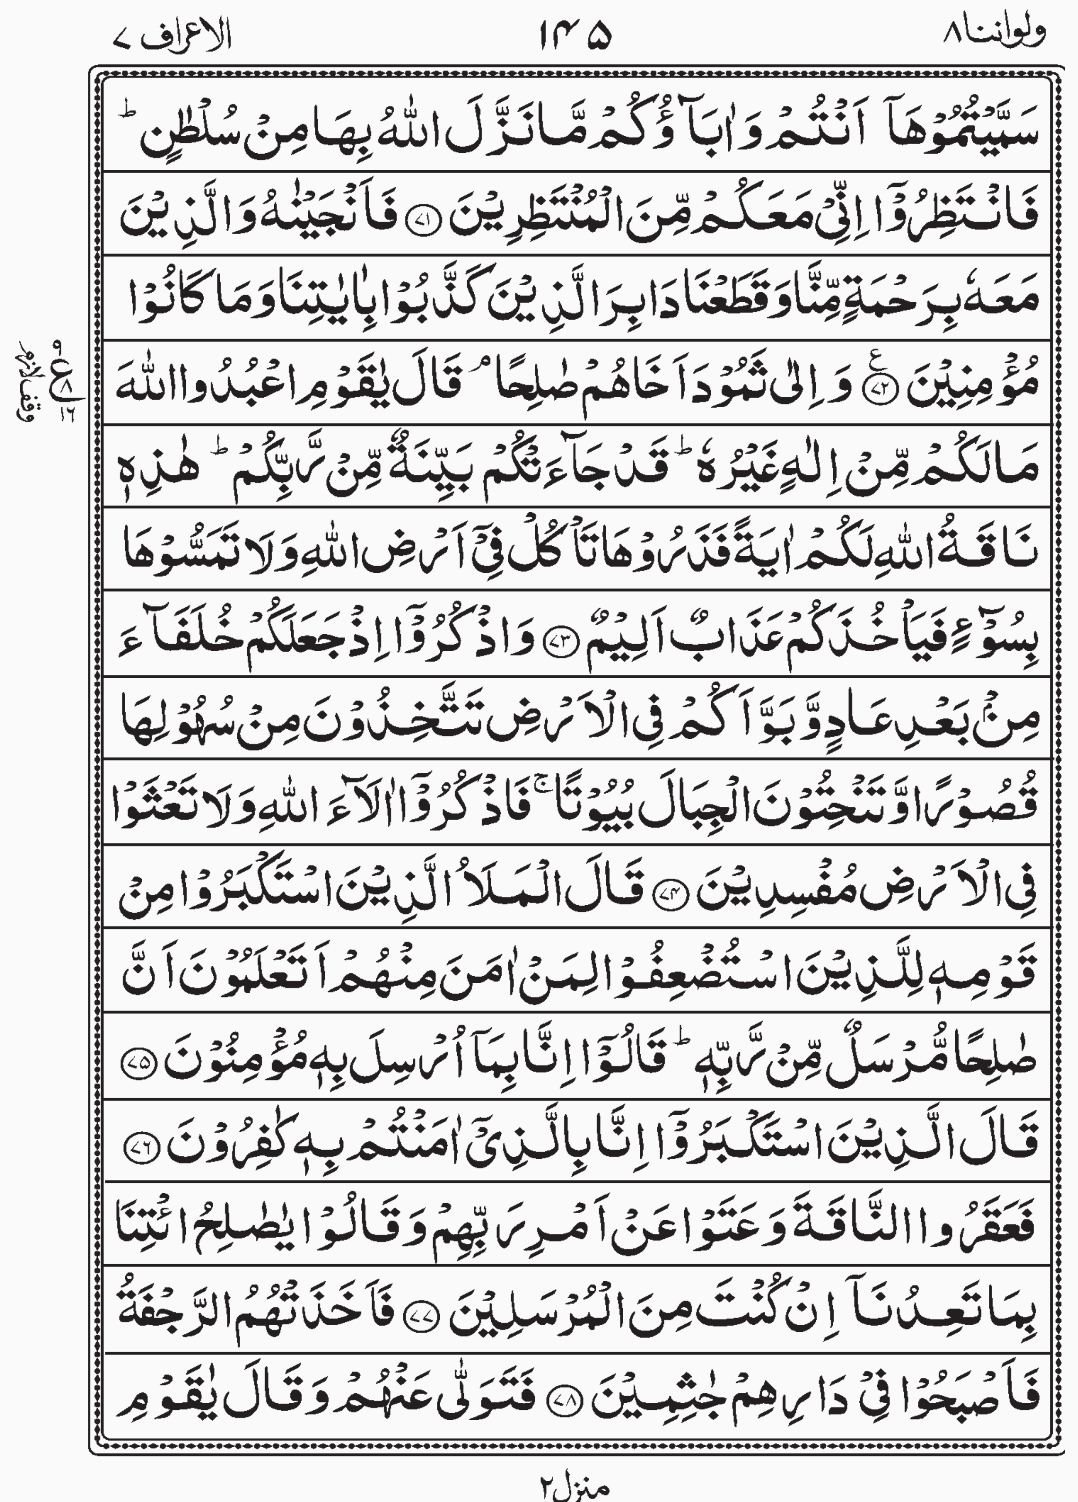 ولواننا۸ ۱۴۵ الاعراف ۷
سَمَّيْتُمُوْهَاۤ اَنْتُمْ وَاٰبَآؤُكُمْ مَّا نَزَّلَ اللّٰهُ بِهَا مِنْ سُلْطٰنٍ ؕ
فَانْتَظِرُوْۤا اِنِّىْ مَعَكُمْ مِّنَ الْمُنْتَظِرِيْنَ ﴿۷۱﴾ فَاَنْجَيْنٰهُ وَالَّذِيْنَ
مَعَهٗ بِرَحْمَةٍ مِّنَّا وَقَطَعْنَا دَابِرَ الَّذِيْنَ كَذَّبُوْا بِاٰيٰتِنَا وَمَا كَانُوْا
مُؤْمِنِيْنَ ﴿۷۲﴾ ع وَاِلٰى ثَمُوْدَ اَخَاهُمْ صٰلِحًا ۘ قَالَ يٰقَوْمِ اعْبُدُوا اللّٰهَ
مَا لَكُمْ مِّنْ اِلٰهٍ غَيْرُهٗ ؕ قَدْ جَآءَتْكُمْ بَيِّنَةٌ مِّنْ رَّبِّكُمْ ؕ هٰذِهٖ
نَاقَةُ اللّٰهِ لَكُمْ اٰيَةً فَذَرُوْهَا تَاْكُلْ فِىْۤ اَرْضِ اللّٰهِ وَلَا تَمَسُّوْهَا
بِسُوْٓءٍ فَيَاْخُذَكُمْ عَذَابٌ اَلِيْمٌ ﴿۷۳﴾ وَاذْكُرُوْۤا اِذْ جَعَلَكُمْ خُلَفَآءَ
مِنْۢ بَعْدِ عَادٍ وَّبَوَّاَكُمْ فِى الْاَرْضِ تَتَّخِذُوْنَ مِنْ سُهُوْلِهَا
قُصُوْرًا وَّتَنْحِتُوْنَ الْجِبَالَ بُيُوْتًا ۚ فَاذْكُرُوْۤا اٰلَآءَ اللّٰهِ وَلَا تَعْثَوْا
فِى الْاَرْضِ مُفْسِدِيْنَ ﴿۷۴﴾ قَالَ الْمَلَاُ الَّذِيْنَ اسْتَكْبَرُوْا مِنْ
قَوْمِهٖ لِلَّذِيْنَ اسْتُضْعِفُوْا لِمَنْ اٰمَنَ مِنْهُمْ اَتَعْلَمُوْنَ اَنَّ
صٰلِحًا مُّرْسَلٌ مِّنْ رَّبِّهٖ ؕ قَالُوْۤا اِنَّا بِمَاۤ اُرْسِلَ بِهٖ مُؤْمِنُوْنَ ﴿۷۵﴾
قَالَ الَّذِيْنَ اسْتَكْبَرُوْۤا اِنَّا بِالَّذِىْۤ اٰمَنْتُمْ بِهٖ كٰفِرُوْنَ ﴿۷۶﴾
فَعَقَرُوا النَّاقَةَ وَعَتَوْا عَنْ اَمْرِ رَبِّهِمْ وَقَالُوْا يٰصٰلِحُ ائْتِنَا
بِمَا تَعِدُنَاۤ اِنْ كُنْتَ مِنَ الْمُرْسَلِيْنَ ﴿۷۷﴾ فَاَخَذَتْهُمُ الرَّجْفَةُ
فَاَصْبَحُوْا فِىْ دَارِهِمْ جٰثِمِيْنَ ﴿۷۸﴾ فَتَوَلّٰى عَنْهُمْ وَقَالَ يٰقَوْمِ
ع ۸ ۱۶ وقف لازم
منزل۲